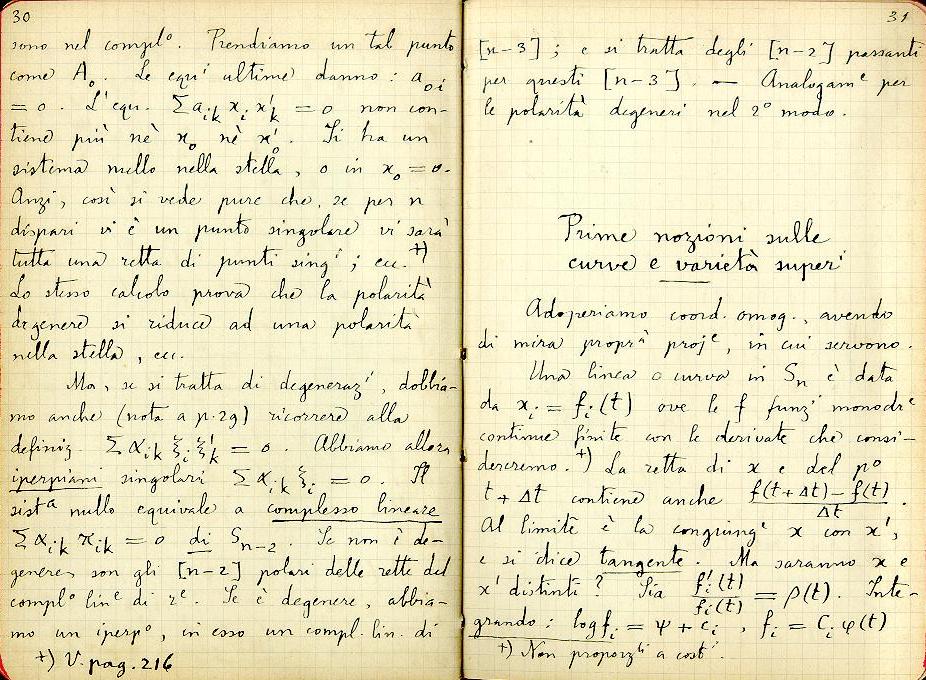 30
sono nel complº. Prendiamo un tal punto
come A₀. Le equⁱ ultime danno: a₀ᵢ
= 0. L'equ. Σ aᵢₖ xᵢ x'ₖ = 0 non con-
tiene più nè x₀ nè x'₀. Si ha un
sistema nullo nella stella, o in x₀ = 0.
Anzi, così si vede pure che, se per n
dispari vi è un punto singolare vi sarà
tutta una retta di punti singⁱ; ecc. +)
Lo stesso calcolo prova che la polarità
degenere si riduce ad una polarità
nella stella, ecc.
Ma, se si tratta di degenerazⁱ, dobbia-
mo anche (nota a p. 29) ricorrere alla
definiz. Σ αᵢₖ ξᵢ ξ'ₖ = 0. Abbiamo allora
iperpiani singolari Σ αᵢₖ ξᵢ = 0. Il
sistª nullo equivale a complesso lineare
Σ αᵢₖ πᵢₖ = 0 di Sₙ₋₂. Se non è de-
genere, son gli [n-2] polari delle rette del
complº linᵉ di rᵉ. Se è degenere, abbia-
mo un iperpº, in esso un compl. lin. di
+) V. pag. 216
31
[n-3]; e si tratta degli [n-2] passanti
per questi [n-3]. — Analogamᵉ per
le polarità degeneri nel 2º modo.
Prime nozioni sulle
curve e varietà superⁱ
Adoperiamo coord. omog., avendo
di mira proprª projᵉ, in cui servono.
Una linea o curva in Sₙ è data
da xᵢ = fᵢ(t) ove le f funzⁱ monodrᵉ
continue finite con le derivate che consi-
dereremo. +) La retta di x e del pº
t + Δt contiene anche f(t + Δt) - f(t) / Δt.
Al limite è la congiungᵉ x con x',
e si dice tangente. Ma saranno x e
x' distinti? Sia f'ᵢ(t) / fᵢ(t) = ρ(t). Inte-
grando: log fᵢ = ψ + cᵢ, fᵢ = Cᵢ φ(t)
+) Non proporzˡⁱ a costⁱ.